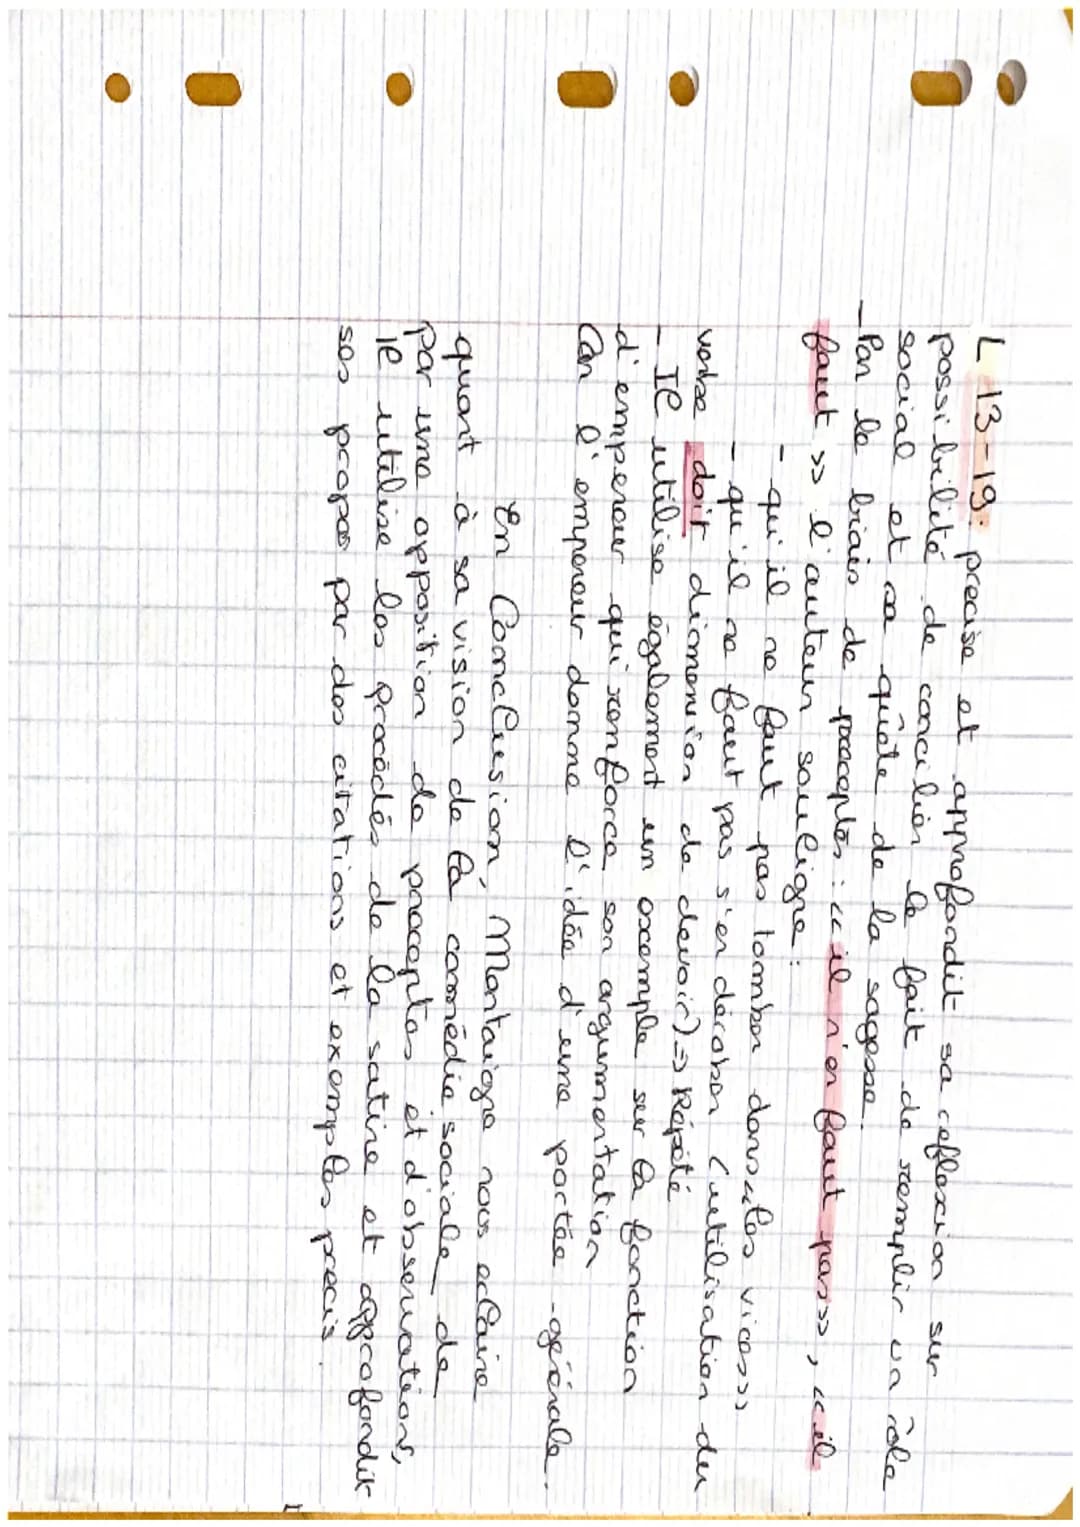 L 13-19: precise et approfondit sa reflexion sur
possibilité de concilier le fait de remplir un rôle
social et sa quête de la sagesse.
- Par le biais de preceptes : « il n'en faut pas », « il
faut » l'auteur souligne :
- qu'il ne faut pas tomber dans « les vices »
- qu'il ne faut pas s'en dérober (utilisation du
verbe doit dimension de devoir) => Répété
- Il utilise également un exemple sur la fonction
d'empereur qui renforce son argumentation
Car l'empereur donne l'idée d'une portée générale.
En Conclusion, Montaigne nous eclaire
quant à sa vision de la comédie sociale de
par une opposition de preceptes et d'observations,
Il utilise les procédés de la satire et approfondit
ses propos par des citations et exemples precis.